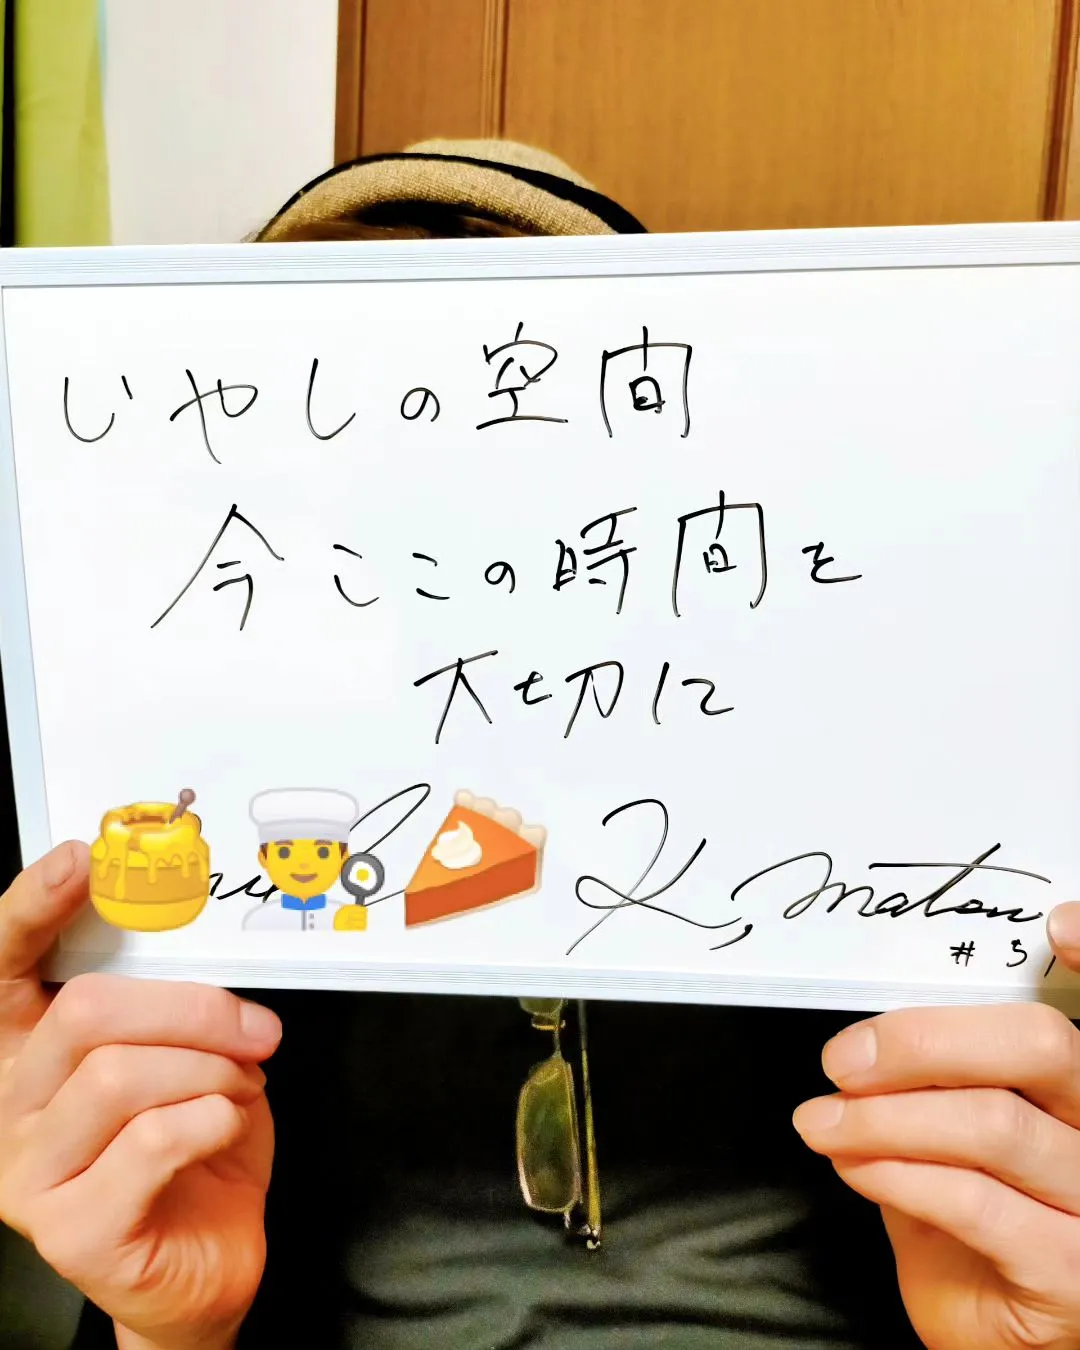 いやしの空間
今ここの時間を
大切に
K, maton
# 51